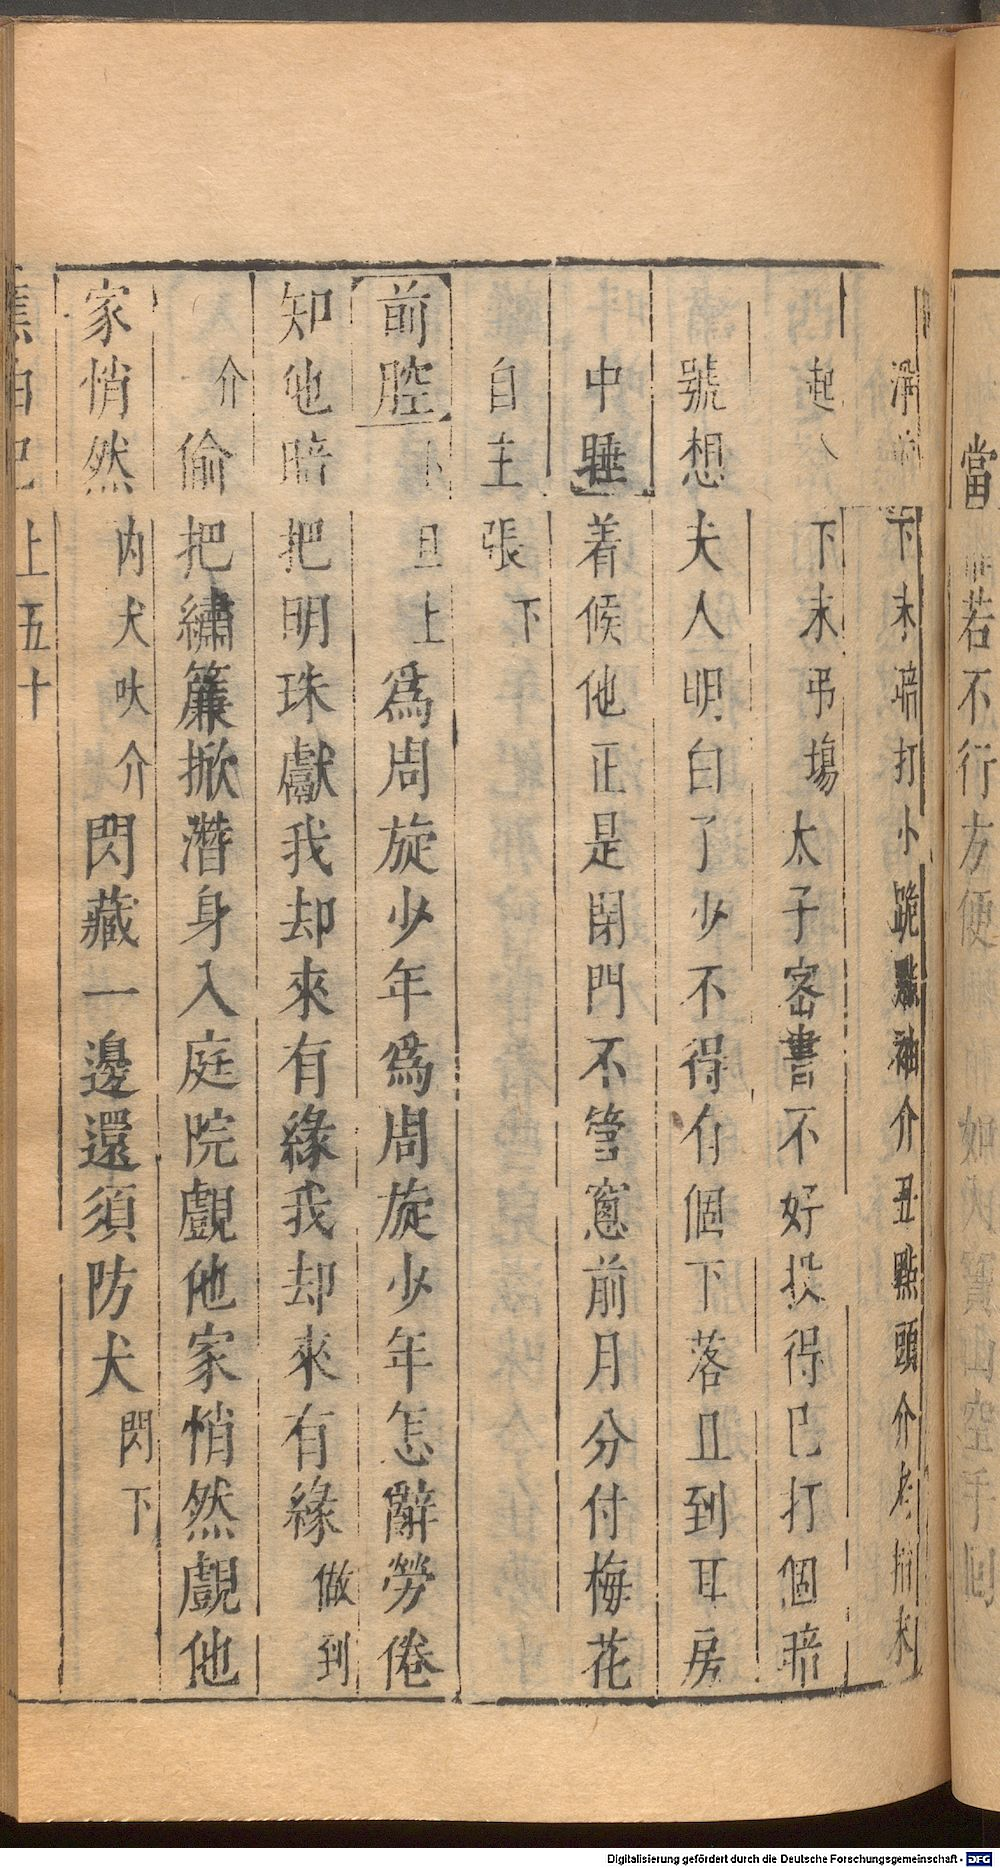 當 若不行方便 如入寶山空手回
淨 下末暗打小跪點袖介丑點頭介 末
起 下末弔場太子密書不好投得已打個暗
號想夫人明白了少不得有個下落且到耳房
中睡着候他正是閉門不管窻前月分付梅花
自主張下
前腔 旦上爲周旋少年爲周旋少年怎辭勞倦
知他暗把明珠獻我却來有緣我却來有緣做到
介偷把繡簾掀潛身入庭院覷他家悄然覷他
家悄然內犬吠介閃藏一邊還須防犬閃下
蕉帕記 上五十
Digitalisierung gefördert durch die Deutsche Forschungsgemeinschaft - DFG